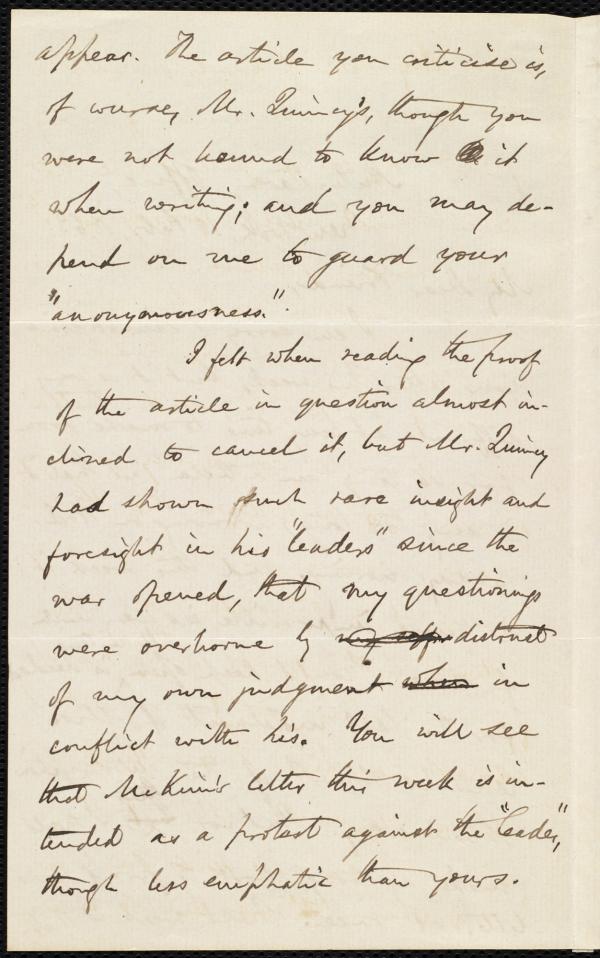 appear. The article you criticise is,
of course, Mr. Quincy's, though you
were not bound to know it
when writing; and you may de-
pend on me to guard your
"anonymousness."
I felt when reading the proof
of the article in question almost in-
clined to cancel it, but Mr. Quincy
had shown such rare insight and
foresight in his "leaders" since the
war opened, that my questionings
were overborne by my distrust
of my own judgment when in
conflict with his. You will see
that McKim's letter this week is in-
tended as a protest against the "leader,"
though less emphatic than yours.